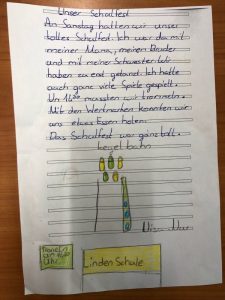 Unser Schulfest
An Samstag hatten wir unser
tolles Schulfest. Ich war da mit
meiner Mama, meinen Bruder
und mit meiner Schwester. Wir
haben zu erst getanzt. Ich hatte
auch ganz viele Spiele gespielt.
Um 16 mussten wir trommeln.
Mit den Wertmarken konnten wir
uns etwas Essen holen.
Das Schulfest war ganz toll.
kegelbahn
Um
Uhr
Linden Schule